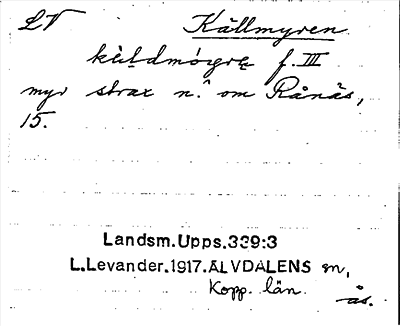 LV Källmyren
f. III
myr strax n. om Rånäs,
15.
Landsm.Upps.339:3
L.Levander.1917.ÄLVDALENS sn,
Kopp. län.
ås.